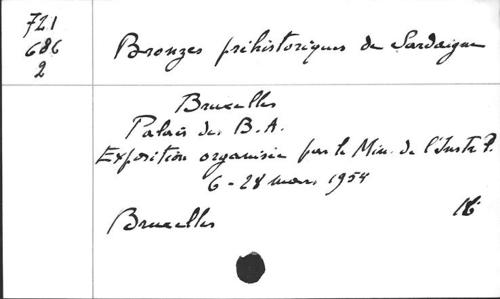 721
686
2
Bronzes préhistoriques de Sardaigne
Bruxelles
Palais des B.A.
Exposition organisée par le Min. de l'Instr. P.
6-28 mars 1954
Bruxelles